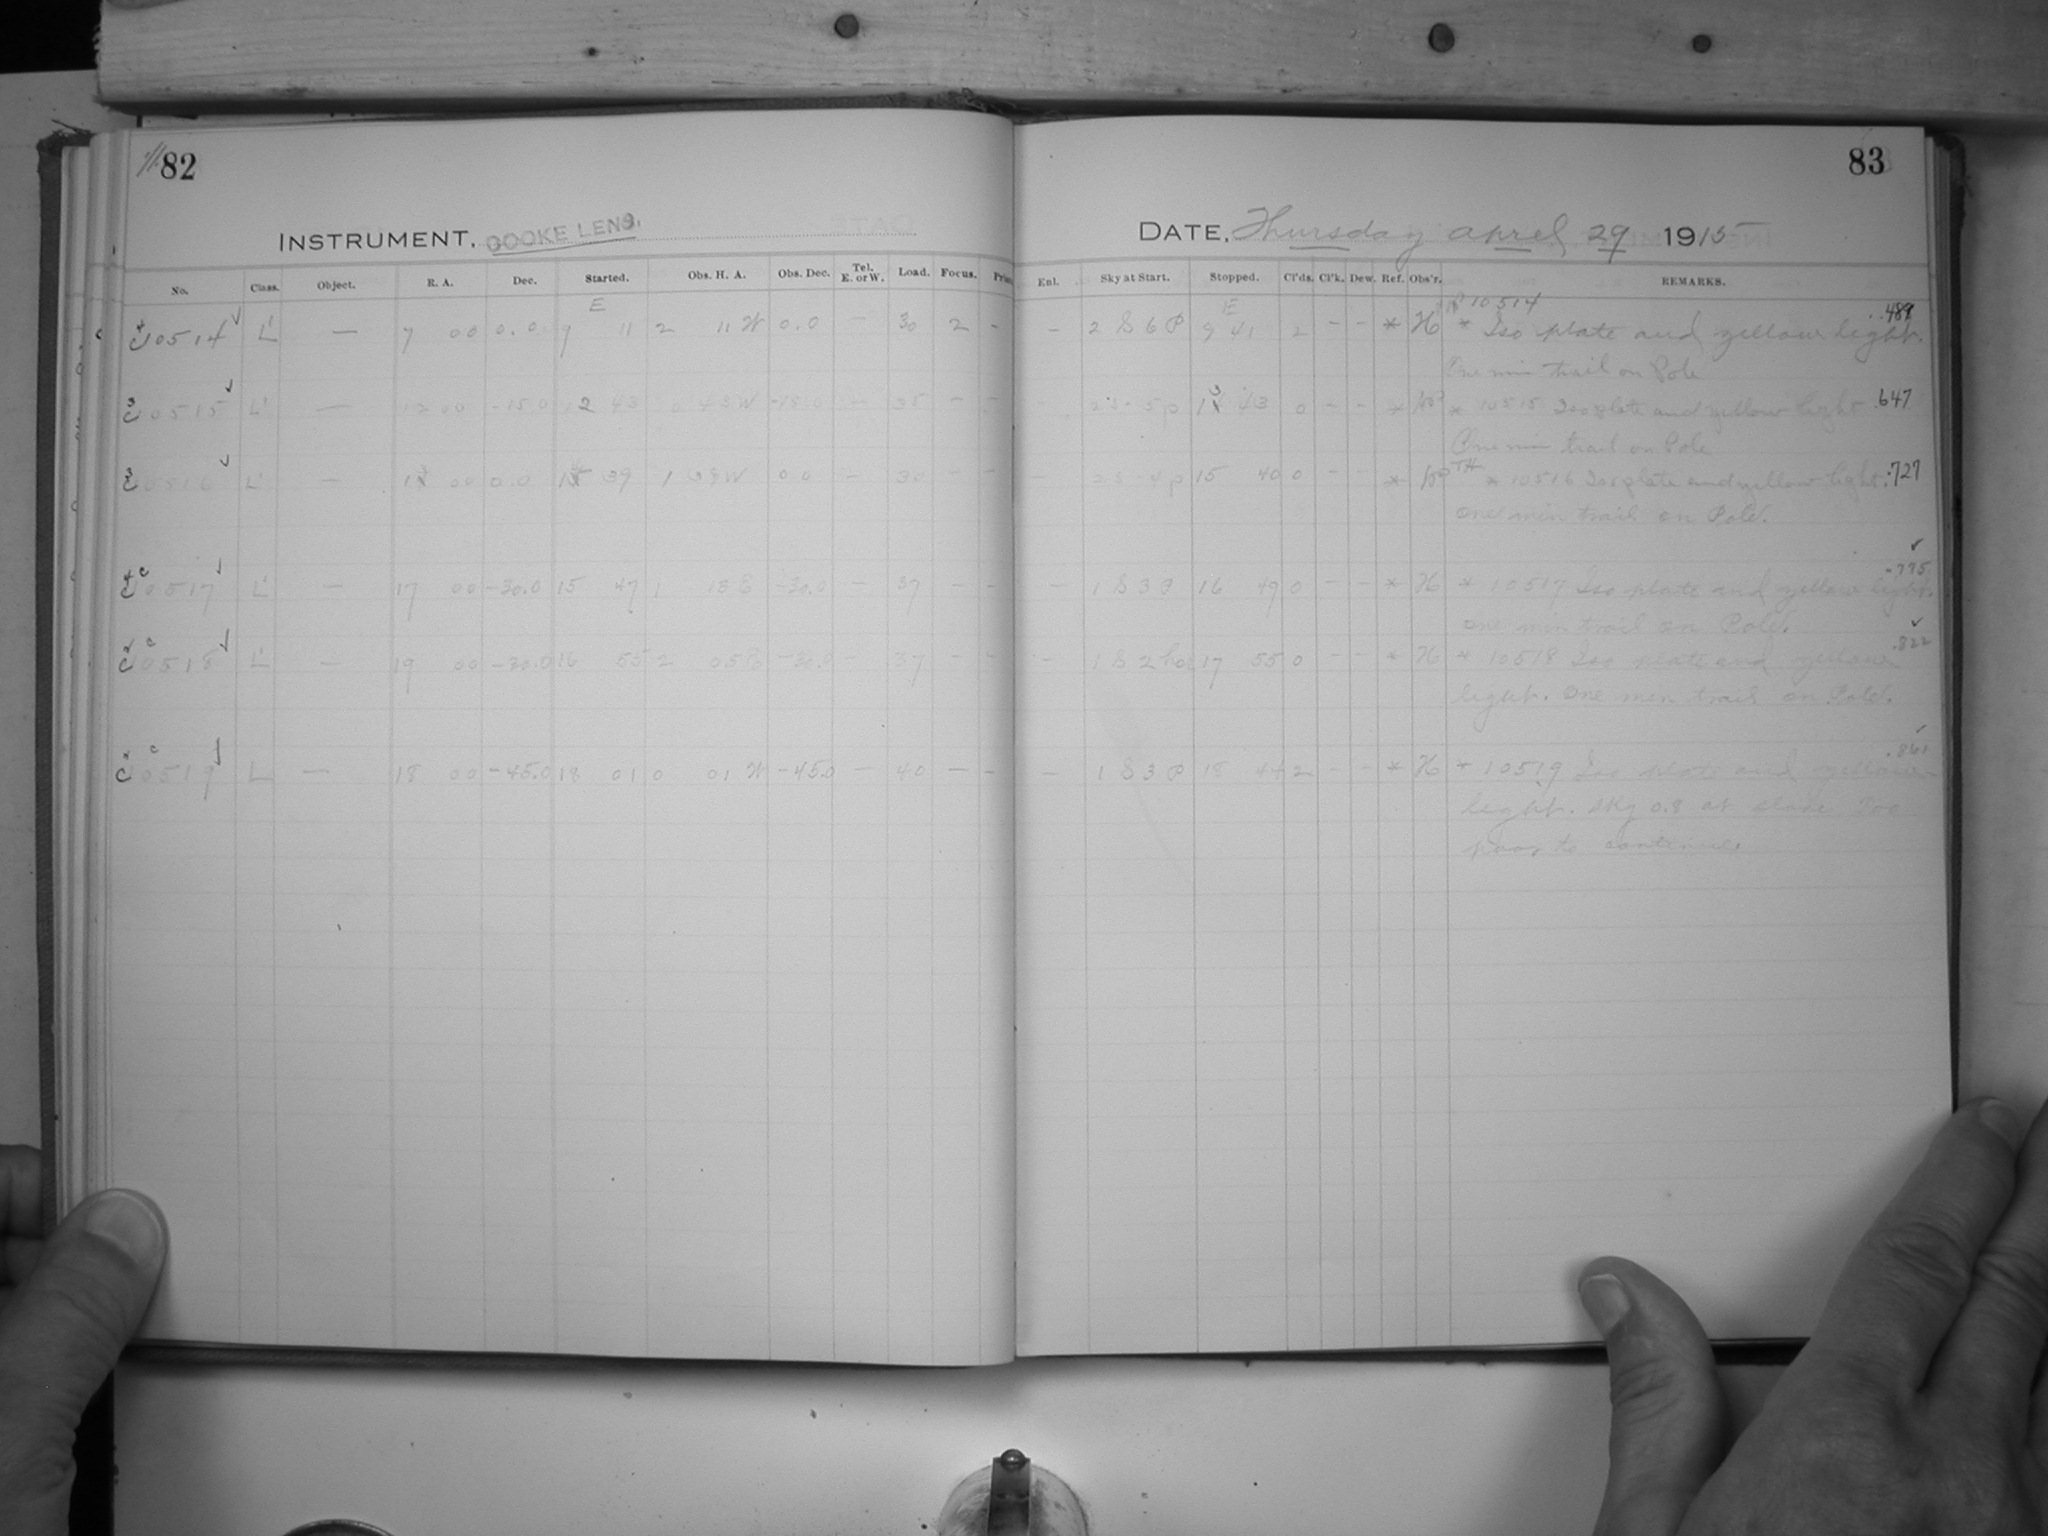 82
INSTRUMENT, COOKE LENS.
No. Class. Object. R. A. Dec. Started. Obs. H. A. Obs. Dec. Tel. E. or W. Load. Focus.
E
10514 L' — 7 00 0.0 9 11 2 11 W 0.0 — 30 2 -
10515 L' — 12 00 -15.0 12 43 0 43 W -15.0 — 35 - -
10516 L' — 00 0.0 39 1 38 W 0.0 — 30 - -
10517 L' — 17 00 -30.0 15 47 1 13 E -30.0 — 37 - -
10518 L' — 19 00 -30.0 16 55 2 05 E -30.0 — 37 - -
10519 L — 18 00 -45.0 18 01 0 01 W -45.0 — 40 — -
83
DATE, Thursday April 29 1915
Enl. Sky at Start. Stopped. Cl'ds. Cl'k. Dew. Ref. Obs'r. REMARKS.
E 10514 .489
— 2 S 6 P 9 41 2 - - * H * Iso plate and yellow light.
One min trail on Pole
2 S 5 p 13 43 0 - - * * 10515 Iso plate and yellow light .647
One min trail on Pole
— 2 S 4 p 15 40 0 - - * * 10516 Iso plate and yellow light. .727
one min trail on Pole.
.775
— 1 S 3 P 16 49 0 - - * H * 10517 Iso plate and yellow light.
one min trail on Pole.
.822
— 1 S 2 17 55 0 - - * H * 10518 Iso plate and yellow
light. One min trail on Pole.
.861
— 1 S 3 P 18 44 2 - - * H * 10519 Iso plate and yellow
light. Sky 0.8 at close Too
poor to continue.